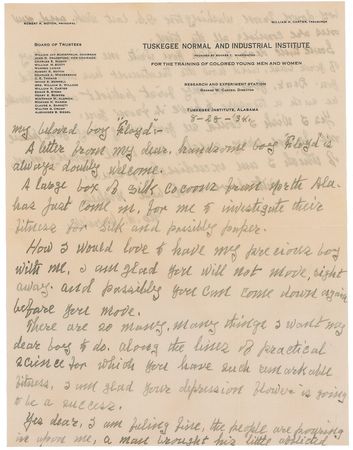 ROBERT R. MOTON, PRINCIPAL
WILLIAM H. CARTER, TREASURER
BOARD OF TRUSTEES
TUSKEGEE NORMAL AND INDUSTRIAL INSTITUTE
FOUNDED BY BOOKER T. WASHINGTON
FOR THE TRAINING OF COLORED YOUNG MEN AND WOMEN
RESEARCH AND EXPERIMENT STATION
GEORGE W. CARVER, DIRECTOR
TUSKEGEE INSTITUTE, ALABAMA
8-28-'34.
my beloved boy "Floyd":-
A letter from my dear, handsome boy "Floyd" is
always doubly welcome.
A large box of silk cocoons from North Ala.
has just come in, for me to investigate their
fitness for silk and possibly paper.
How I would love to have my precious boy
with me, I am glad you will not move right
away. and possibly you can come down again
before you move.
There are so many, many things I want my
dear boy to do. along the lines of practical
science for which you have such remarkable
fitness, I am glad your depression flower is going
to be a success.
Yes dear, I am feeling fine, the people are pouring
in upon me, a man brought his little afflicted